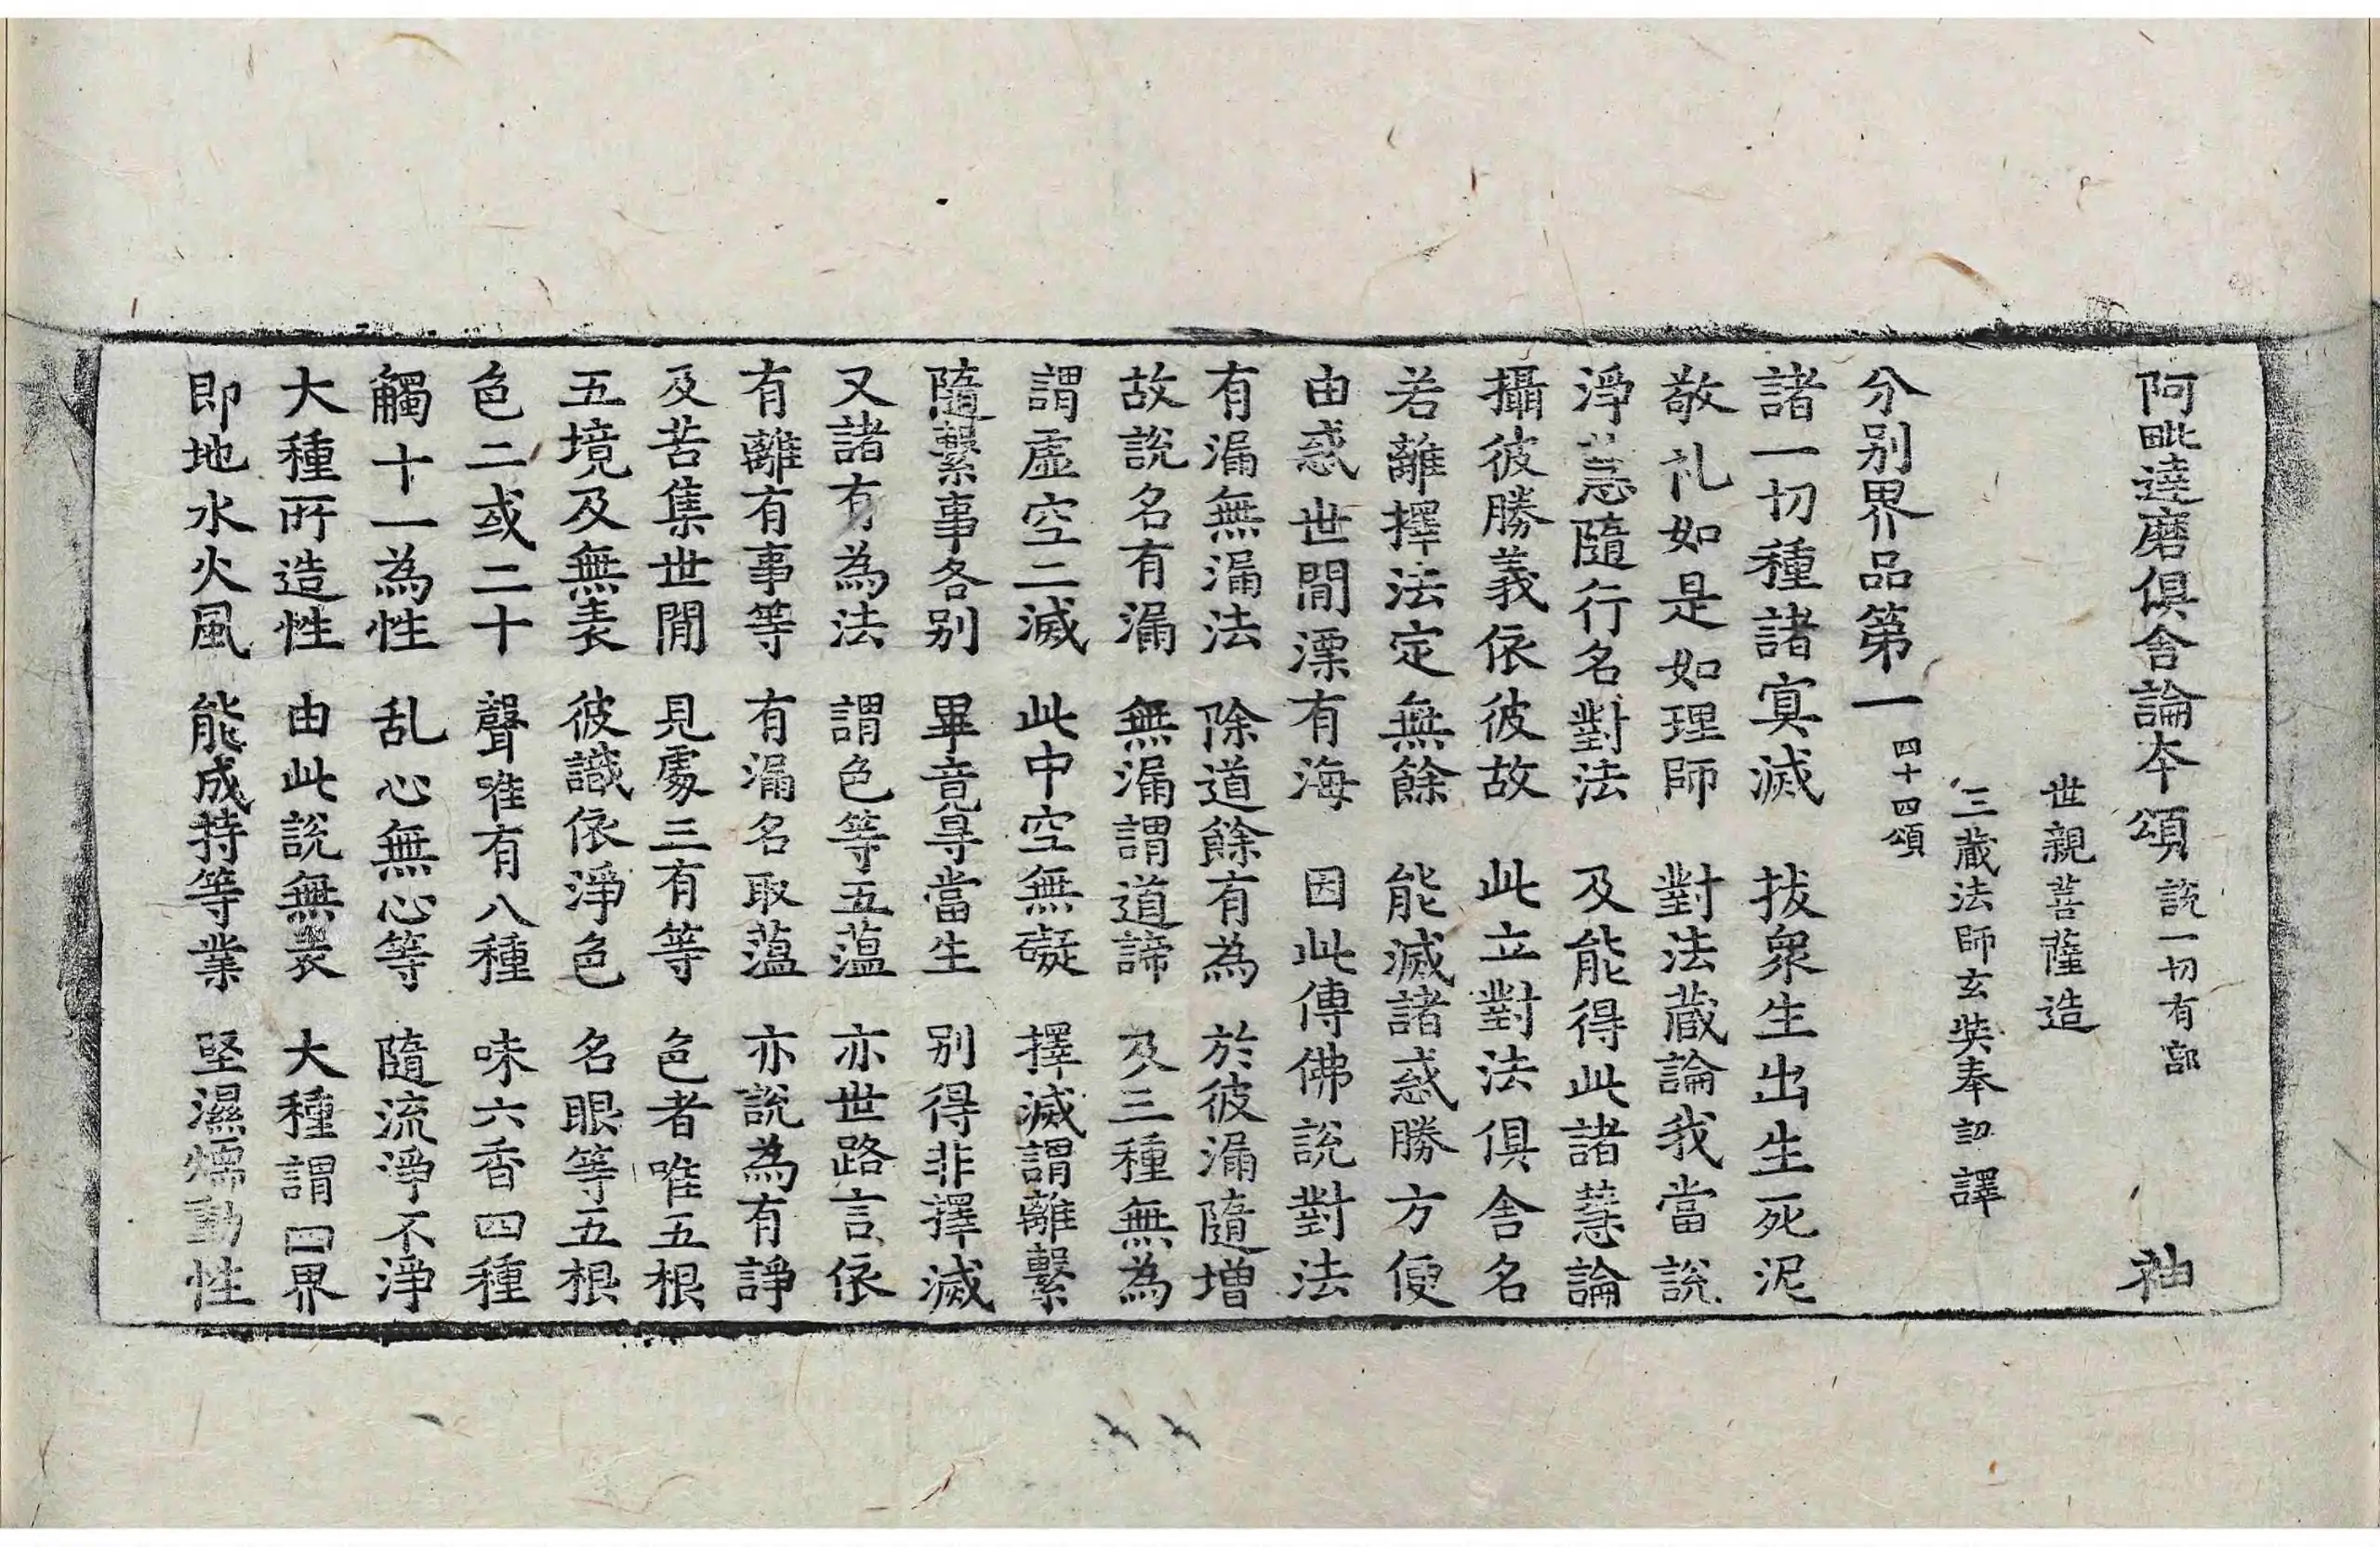 阿毗達磨俱舍論本頌 說一切有部 袖
世親菩薩造
三藏法師玄奘奉 詔譯
分別界品第一 四十四頌
諸一切種諸冥滅 拔衆生出生死泥
敬礼如是如理師 對法藏論我當說
淨慧隨行名對法 及能得此諸慧論
攝彼勝義依彼故 此立對法俱舍名
若離擇法定無餘 能滅諸惑勝方便
由惑世間漂有海 因此傳佛說對法
有漏無漏法 除道餘有為 於彼漏隨增
故說名有漏 無漏謂道諦 及三種無為
謂虛空二滅 此中空無礙 擇滅謂離繫
隨繫事各別 畢竟㝵當生 別得非擇滅
又諸有為法 謂色等五蘊 亦世路言依
有離有事等 有漏名取蘊 亦說為有諍
及苦集世間 見處三有等 色者唯五根
五境及無表 彼識依淨色 名眼等五根
色二或二十 聲唯有八種 味六香四種
觸十一為性 乱心無心等 隨流淨不淨
大種所造性 由此說無表 大種謂四界
即地水火風 能成持等業 堅濕煗動性